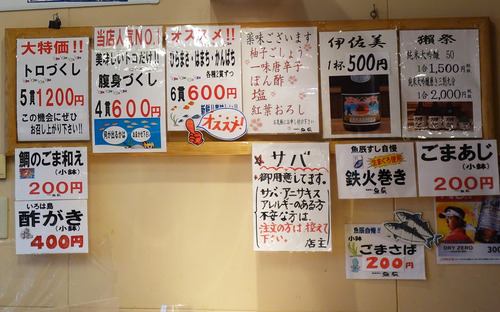 大特価!!
トロづくし
5貫1200円
この機会にぜひ
お召し上がり下さい!!
当店人気NO.1
美味しいトコだけ!!
腹身づくし
4貫600円
何が出るかは
オススメ!!
ひらまさ・はまち・かんぱち
各種2貫ずつ
6貫600円
オススメ!
薬味ございます
柚子ごしょう
一味唐辛子
ぽん酢
塩
紅葉おろし
伊佐美
1杯500円
獺祭
純米大吟醸 50
1合1,500円
1合2,000円
鯛のごま和え
(小鉢)
200円
いろは島
酢がき
(小鉢)
400円
サバ
御用意してます。
サバ・アニサキス
アレルギーのある方
不安な方は、
注文の方は控えて
下さい。
店主
魚辰すし自慢!
生まぐろ使用
鉄火巻き
ごまあじ
(小鉢)
200円
魚辰自慢!!
小鉢
ごまさば
200円
DRY ZERO
300